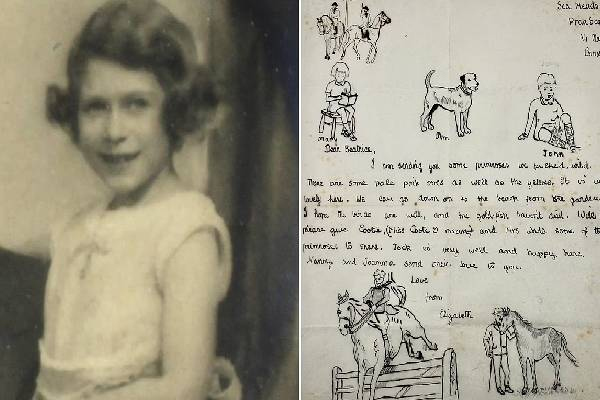 Sea Meads
Dear Beatrice,
John
I am sending you some primroses we picked, wild.
There are some pale pink ones as well as the yellow. It is
lovely here. We can go down on to the beach from the garden
I hope the birds are well, and the goldfish havent died. Will
please give Cootie, and some of the
primroses to share. Jock is very well and happy here.
Nanny, and Joanna send their love to you.
Love
from
Elizabeth